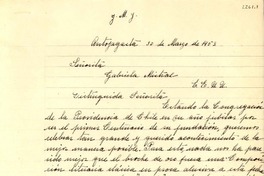 y. M. J.
Antofagasta 30 de Marzo de 1953
Señorita
Gabriela Mistral
EE. UU.
Distinguida Señorita:
Estando la Congregación
de la Providencia de Chile en su año jubilar por
ser el primer Centenario de su fundación, queremos
celebrar tan grande y querido acontecimiento de la
mejor manera posible. Para esto nada nos ha pa-
recido mejor que el broche de oro fuera una Composi-
ción literaria clásica en prosa alusiva a este